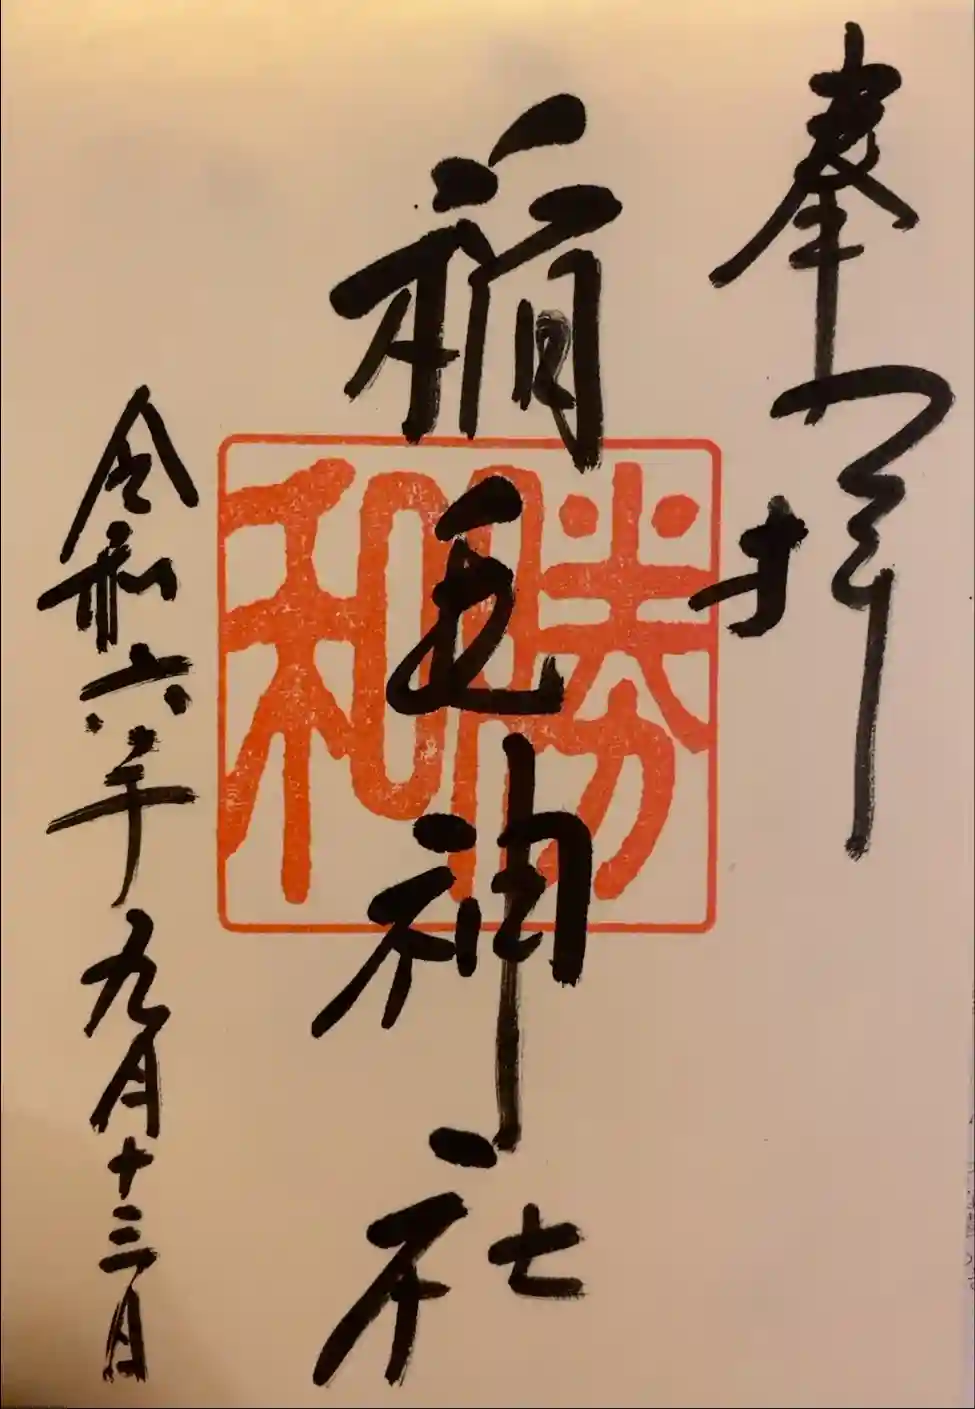 奉拝
稲毛神社
勝和
令和六年九月十三日